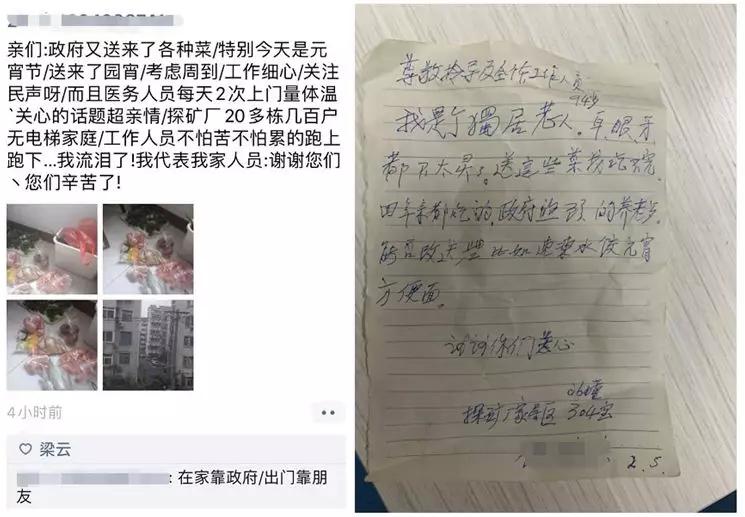 亲们:政府又送来了各种菜/特别今天是元
宵节/送来了园宵/考虑周到/工作细心/关注
民声呀/而且医务人员每天2次上门量体温
`关心的话题超亲情/探矿厂20多栋几百户
无电梯家庭/工作人员不怕苦不怕累的跑上
跑下...我流泪了!我代表我家人员:谢谢您们
丶您们辛苦了!
4小时前
梁云
: 在家靠政府/出门靠朋
友
尊敬领导及全体工作人员
94岁
我是个獨居老人。耳、眼、牙
都不太灵。送這些菜我吃
四年来都吃的政府照顾的养老
能否改送些比如速冻水饺元宵
方便面。
谢谢你们关心
26幢
探矿厂家属区 304室
2.5.